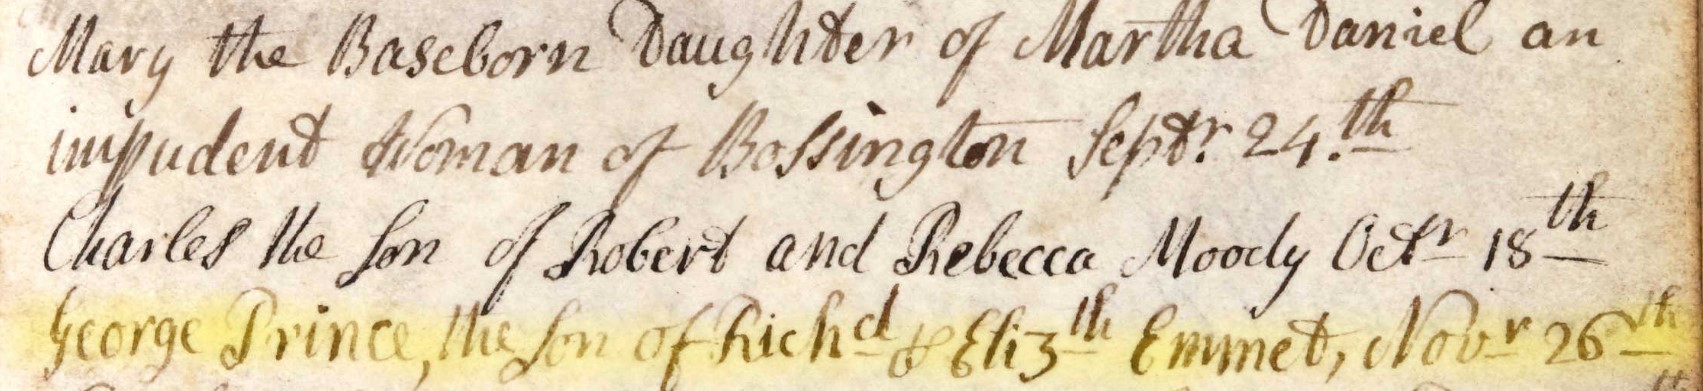 Mary the Baseborn Daughter of Martha Daniel an
impudent Woman of Bossington Septr. 24.th
Charles the Son of Robert and Rebecca Moody Octr 18th
George Prince, the Son of Richd & Elizth Emmet, Novr 26th